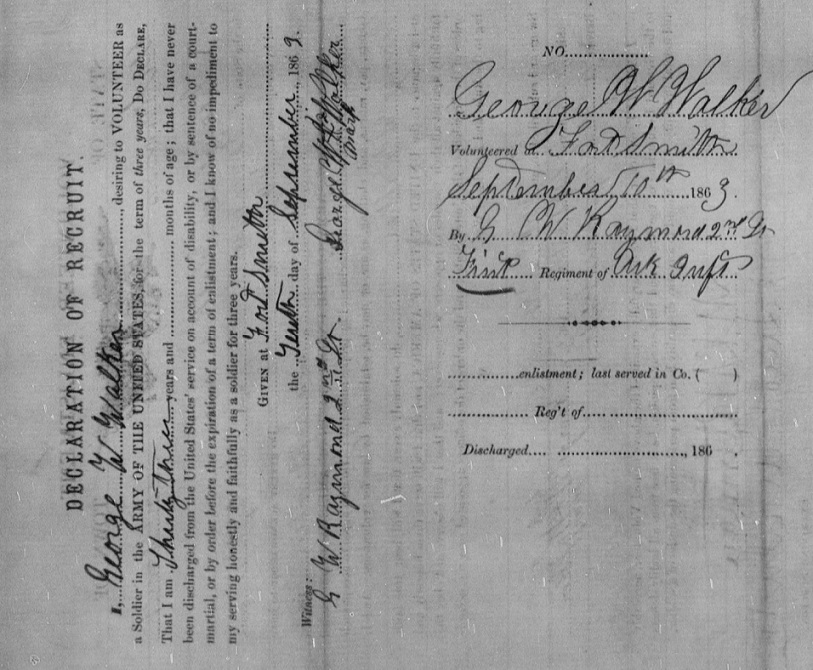 DECLARATION OF RECRUIT.
I, George W Walker, desiring to VOLUNTEER as
a Soldier in the ARMY OF THE UNITED STATES, for the term of three years, Do DECLARE,
That I am Thirty Three years and months of age; that I have never
been discharged from the United States' service on account of disability, or by sentence of a court-
martial, or by order before the expiration of a term of enlistment; and I know of no impediment to
my serving honestly and faithfully as a soldier for three years.
GIVEN at Fort Smith
the Tenth day of September, 1863.
Witness:
G W Raymond 2nd Lt. George W his X Walker
mark
NO.
George W Walker
Volunteered at Fort Smith
September 10th 1863.
By G W Raymond 2nd Lt
First Regiment of Ark Inft
enlistment; last served in Co. ( )
Reg't of
Discharged , 186 .